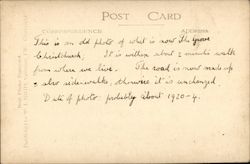 POST CARD
CORRESPONDENCE ADDRESS
This is an old photo of what is now The Grove
Christchurch. It is within about 2 minutes walk
from where we live. The road is now made up
& also sidewalks, otherwise it is unchanged.
Date of photo: probably about 1920-4.